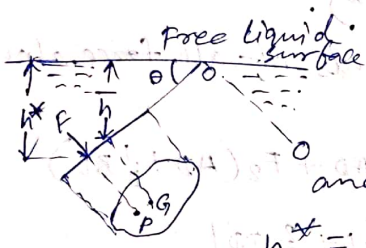 Free liquid
surface
θ O
h* F h
O
G
P
and
h* =